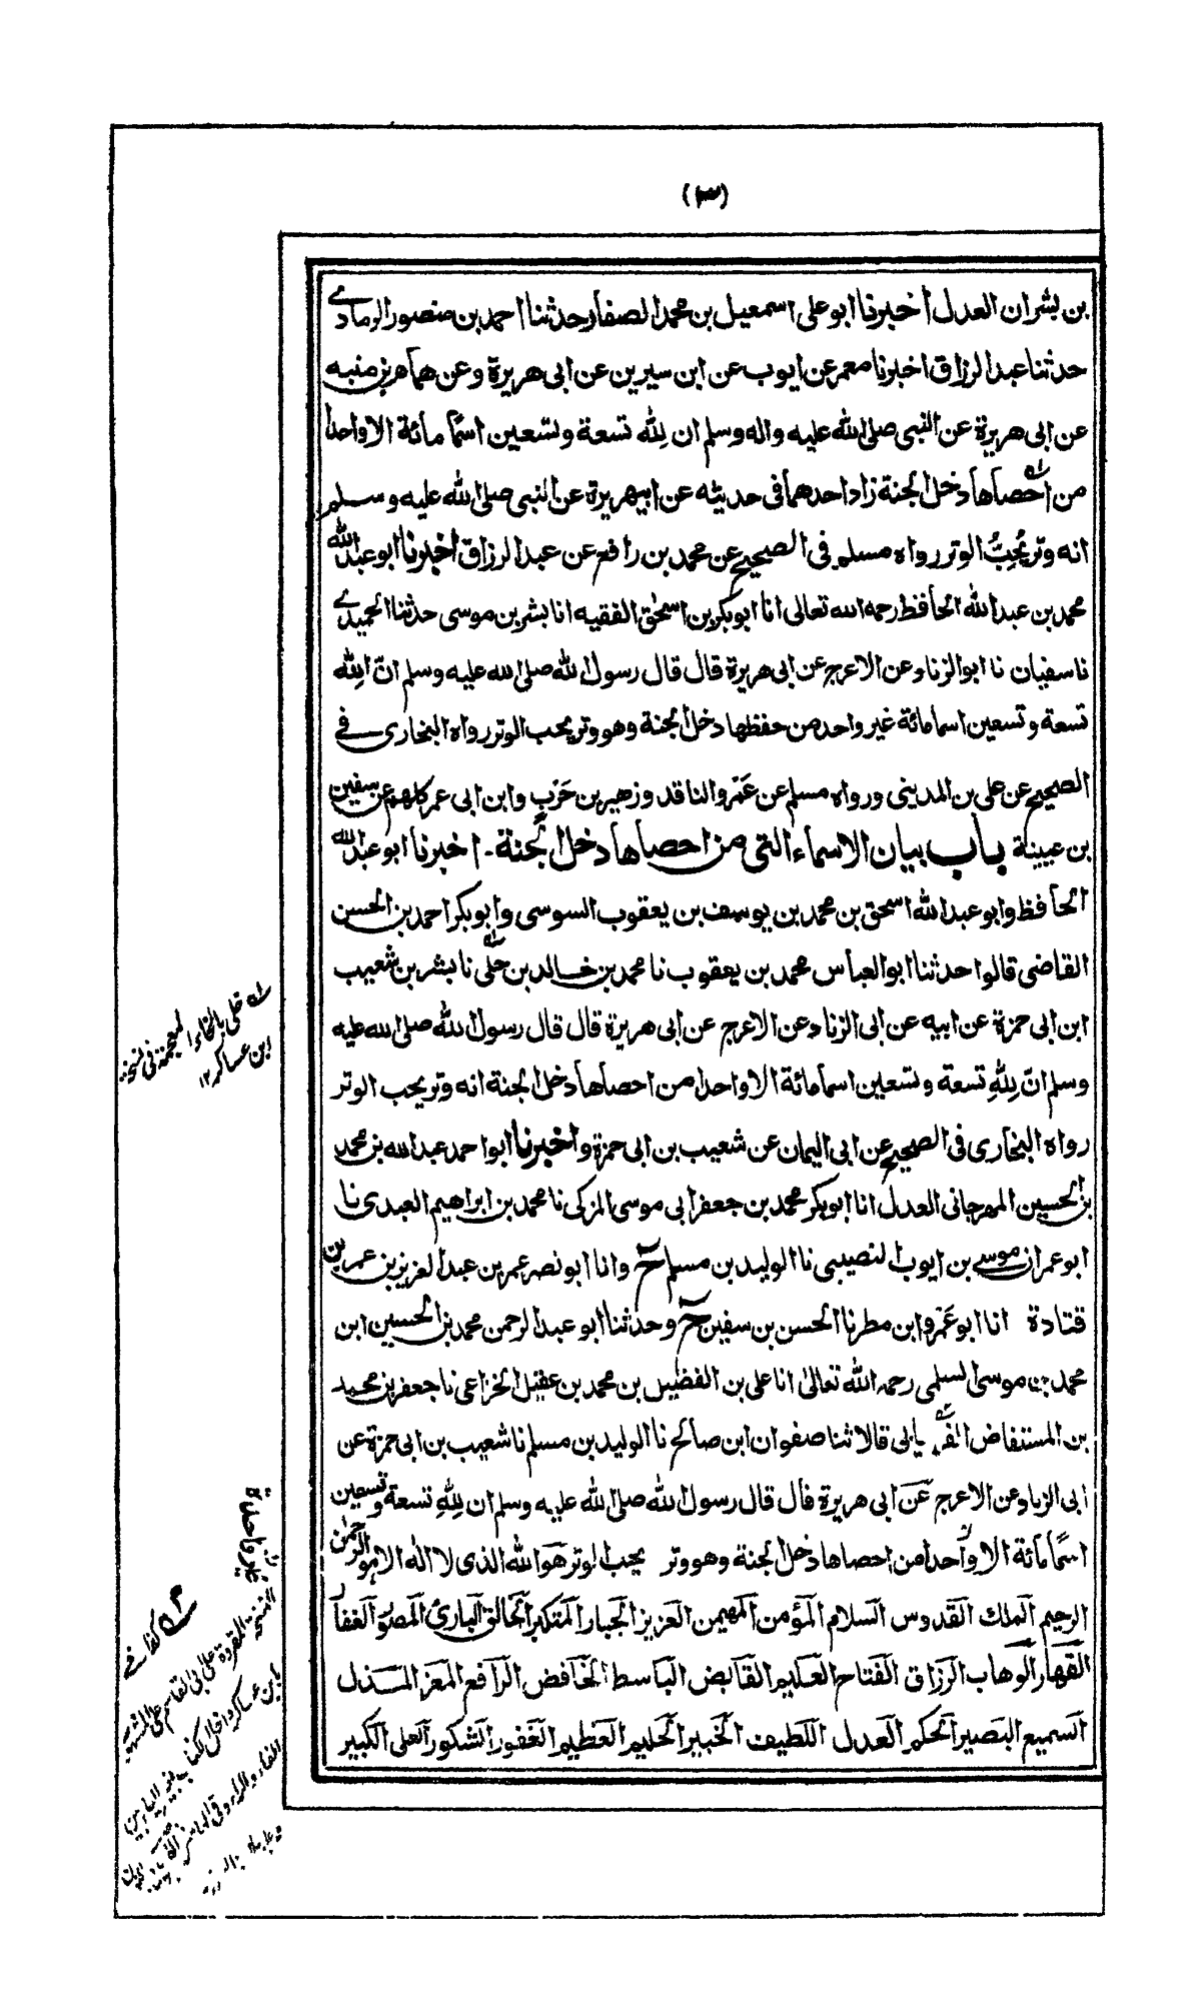 (٣)
بن بشران العدل اخبرنا ابو علی اسمعیل بن محمد الصفار حدثنا احمد بن منصور الرمادے
حدثنا عبد الرزاق اخبرنا معمر عن ایوب عن ابن سیرین عن ابی هریرة وعن همام بن منبه
عن ابی هریرة عن النبی صلی الله علیه واله وسلم ان لله تسعة وتسعین اسمًا مائة الا واحدًا
من احصاها دخل الجنة زاد احدهما فی حدیثه عن ابیهریرة عن النبی صلی الله علیه وسلم
انه وتر یُحِبُّ الوتر رواه مسلم فی الصحیح عن محمد بن رافع عن عبد الرزاق اخبرنا ابو عبد الله
محمد بن عبد الله الحافظ رحمه الله تعالی انا ابو بکر بن اسحٰق الفقیه انا بشر بن موسی حدثنا الحمیدے
نا سفیان نا ابو الزناد عن الاعرج عن ابی هریرة قال قال رسول الله صلی الله علیه وسلم انّ لِلّٰه
تسعة وتسعین اسما مائة غیر واحد من حفظها دخل الجنة وهو وتر یحب الوتر رواه البخاری فے
الصحیح عن علی بن المدینی ورواه مسلم عن عَمْرو الناقد وزهیر بن حَرْب وابن ابی عمر کلهم عن سفین
بن عیینة باب بیان الاسماء التی من احصاها دخل الجنة - اخبرنا ابو عبد الله
الحافظ وابو عبد الله اسحق بن محمد بن یوسف بن یعقوب السوسی وابو بکر احمد بن الحسن
القاضی قالوا حدثنا ابو العباس محمد بن یعقوب نا محمد بن خالد بن حلی نا بشر بن شعیب
ابن ابی حمزة عن ابیه عن ابی الزناد عن الاعرج عن ابی هریرة قال قال رسول الله صلی الله علیه
وسلم انّ لِلّٰهِ تسعة وتسعین اسما مائة الا واحدا من احصاها دخل الجنة انه وتر یحب الوتر
رواه البخاری فی الصحیح عن ابی الیمان عن شعیب بن ابی حمزة واخبرنا ابو احمد عبد الله بن محمد
بن الحسین المهرجانی العدل انا ابو بکر محمد بن جعفر ابی موسی المزکی نا محمد بن ابراهیم العبدی نا
ابو عمران موسے بن ایوب النصیبی نا الولید بن مسلم ح وانا ابو نصر عمر بن عبد العزیز بن عمر بن
قتادة انا ابو عَمْرو ابن مطر نا الحسن بن سفین ح وحدثنا ابو عبد الرحمن محمد بن الحسین ابن
محمد بن موسی السلمی رحمه الله تعالیٰ انا علی بن الفضیل بن محمد بن عقیل الخزاعی نا جعفر بن محمد
بن المستفاض الفریابی قالا ثنا صفوان ابن صالح نا الولید بن مسلم نا شعیب بن ابی حمزة عن
ابی الزناد عن الاعرج عن ابی هریرة قال قال رسول الله صلی الله علیه وسلم ان لِلّٰهِ تسعة وتسعین
اسمًا مائة الا واحدا من احصاها دخل الجنة وهو وتر یحب الوتر هو الله الذی لا اله الا هو الرحمٰن
الرحیم الملك القدوس السلام المؤمن المهیمن العزیز الجبار المتکبر الخالق الباریُ المصور الغفار
القهار الوهاب الرزاق الفتاح العلیم القابض الباسط الخافض الرافع المعز المذل
السمیع البصیر الحکم العدل اللطیف الخبیر الحلیم العظیم الغفور الشکور العلی الکبیر
خلی بالخاء المعجمة فی نسخة
ابن عساکر ١٢
غیر واحدة
کذا فے
النسخة المقروة علی ابی القاسم علی الشهیر
بابن عساکر